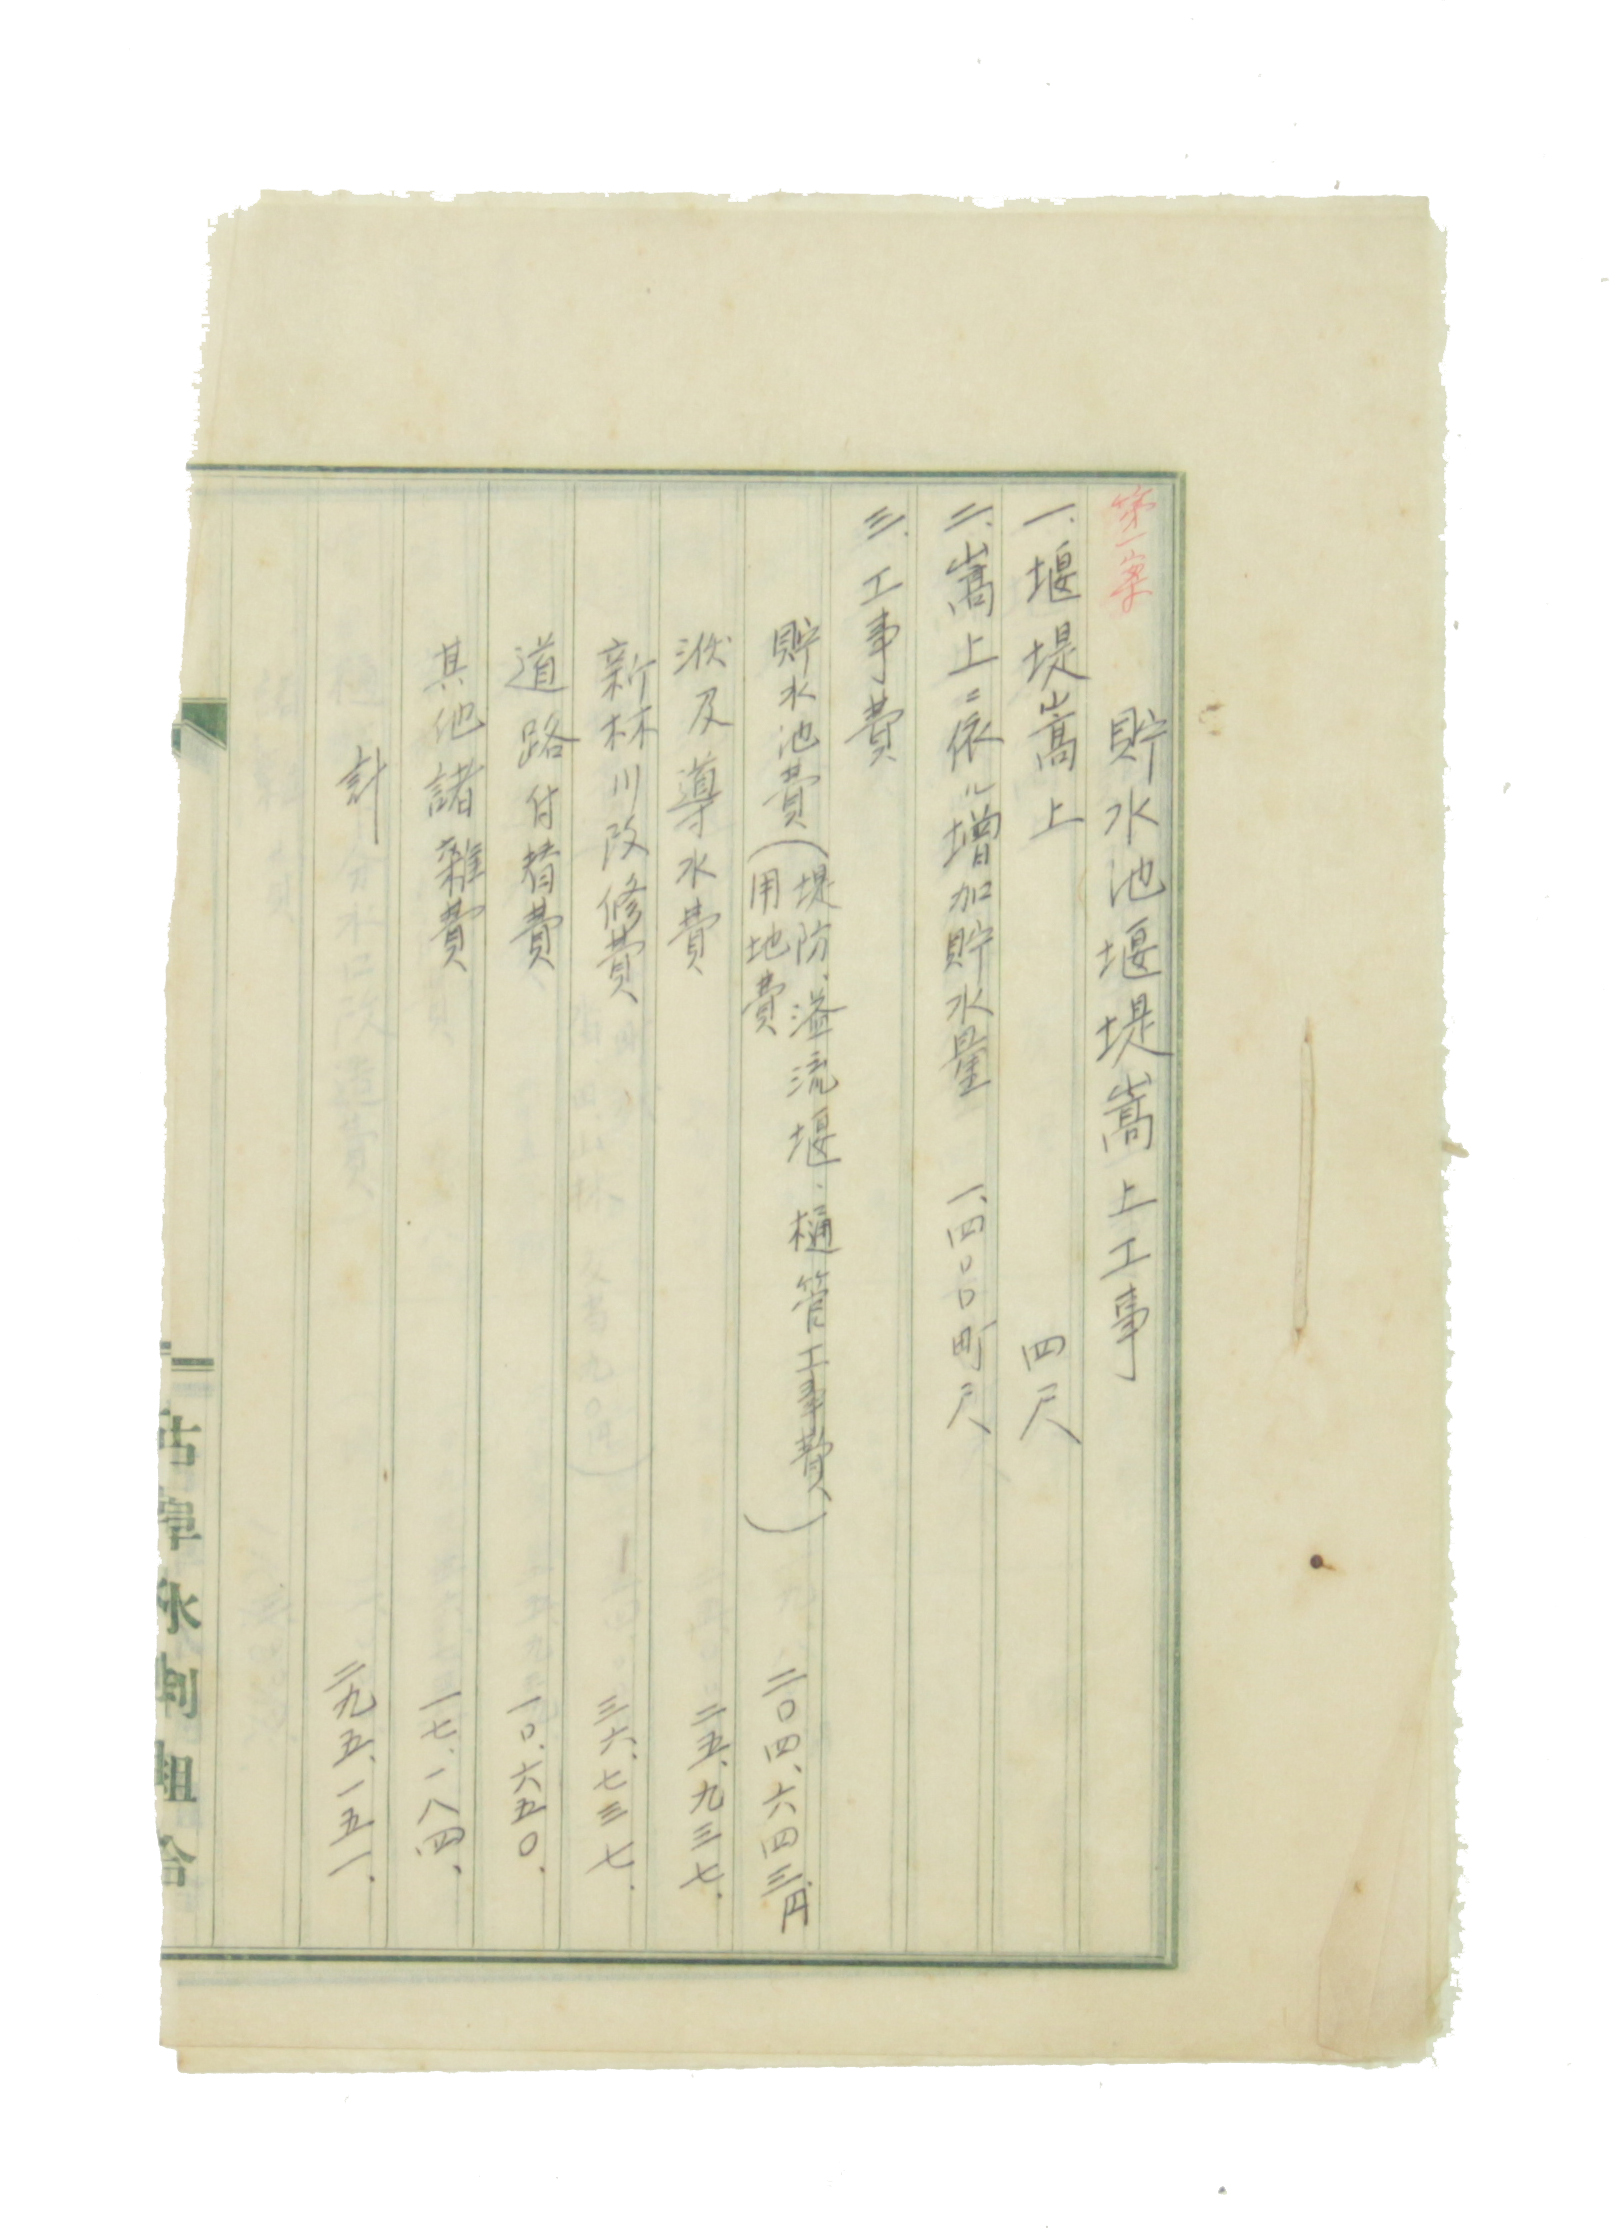 第一案
貯水池堰堤嵩上工事
一、堰堤嵩上 四尺
二、嵩上ニ依ル増加貯水量 一、四〇〇町尺
三、工事費
貯水池費(堤防、溢流堰、樋管工事費
用地費) 二〇四、六四三円
及導水費 二五、九三七、
新林川改修費 三六、七三七、
道路付替費 一〇、六五〇、
其他諸雜費 一七、一八四、
計 二九五、一五一、
水利組合